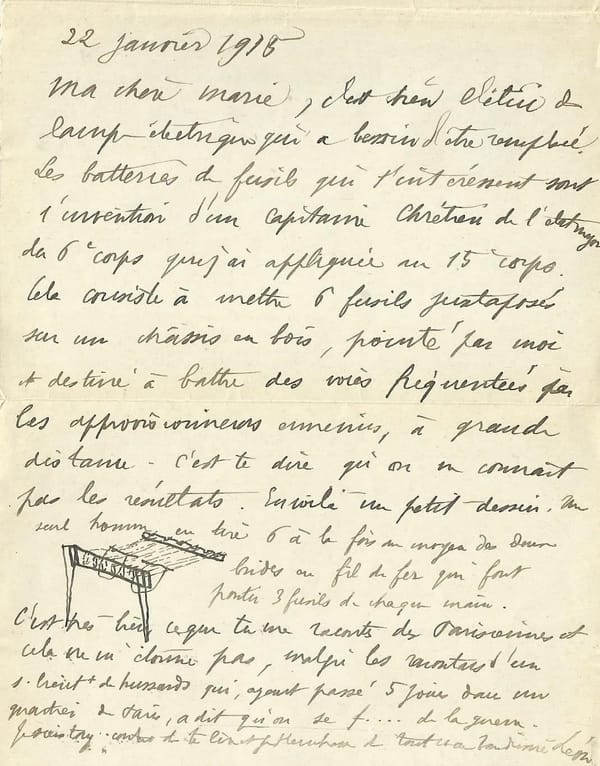 22 janvier 1915
Ma chère Marie, c'est bien l'étui de
lampe électrique qui a besoin d'être remplacé.
Les batteries de fusils qui t'intéressent sont
l'invention d'un capitaine Chrétien de l'état-major
du 6e corps que j'ai appliquée au 15e corps.
Cela consiste à mettre 6 fusils juxtaposés
sur un châssis en bois, pointé par moi
et destiné à battre des voies fréquentées par
les approvisionneurs ennemis, à grande
distance - c'est te dire qu'on en connait
pas les résultats. En voilà un petit dessin. Un
seul homme en tire 6 à la fois au moyen des deux
brides en fil de fer qui font
partir 3 fusils de chaque main.
C'est très bien ce que tu me racontes des Parisiennes et
cela ne m'étonne pas, malgré les racontars d'un
s. lieutt de hussards qui, ayant passé 5 jours dans un
quartier de Paris, a dit qu'on se f.... de la guerre.
de te de tout mon Léon